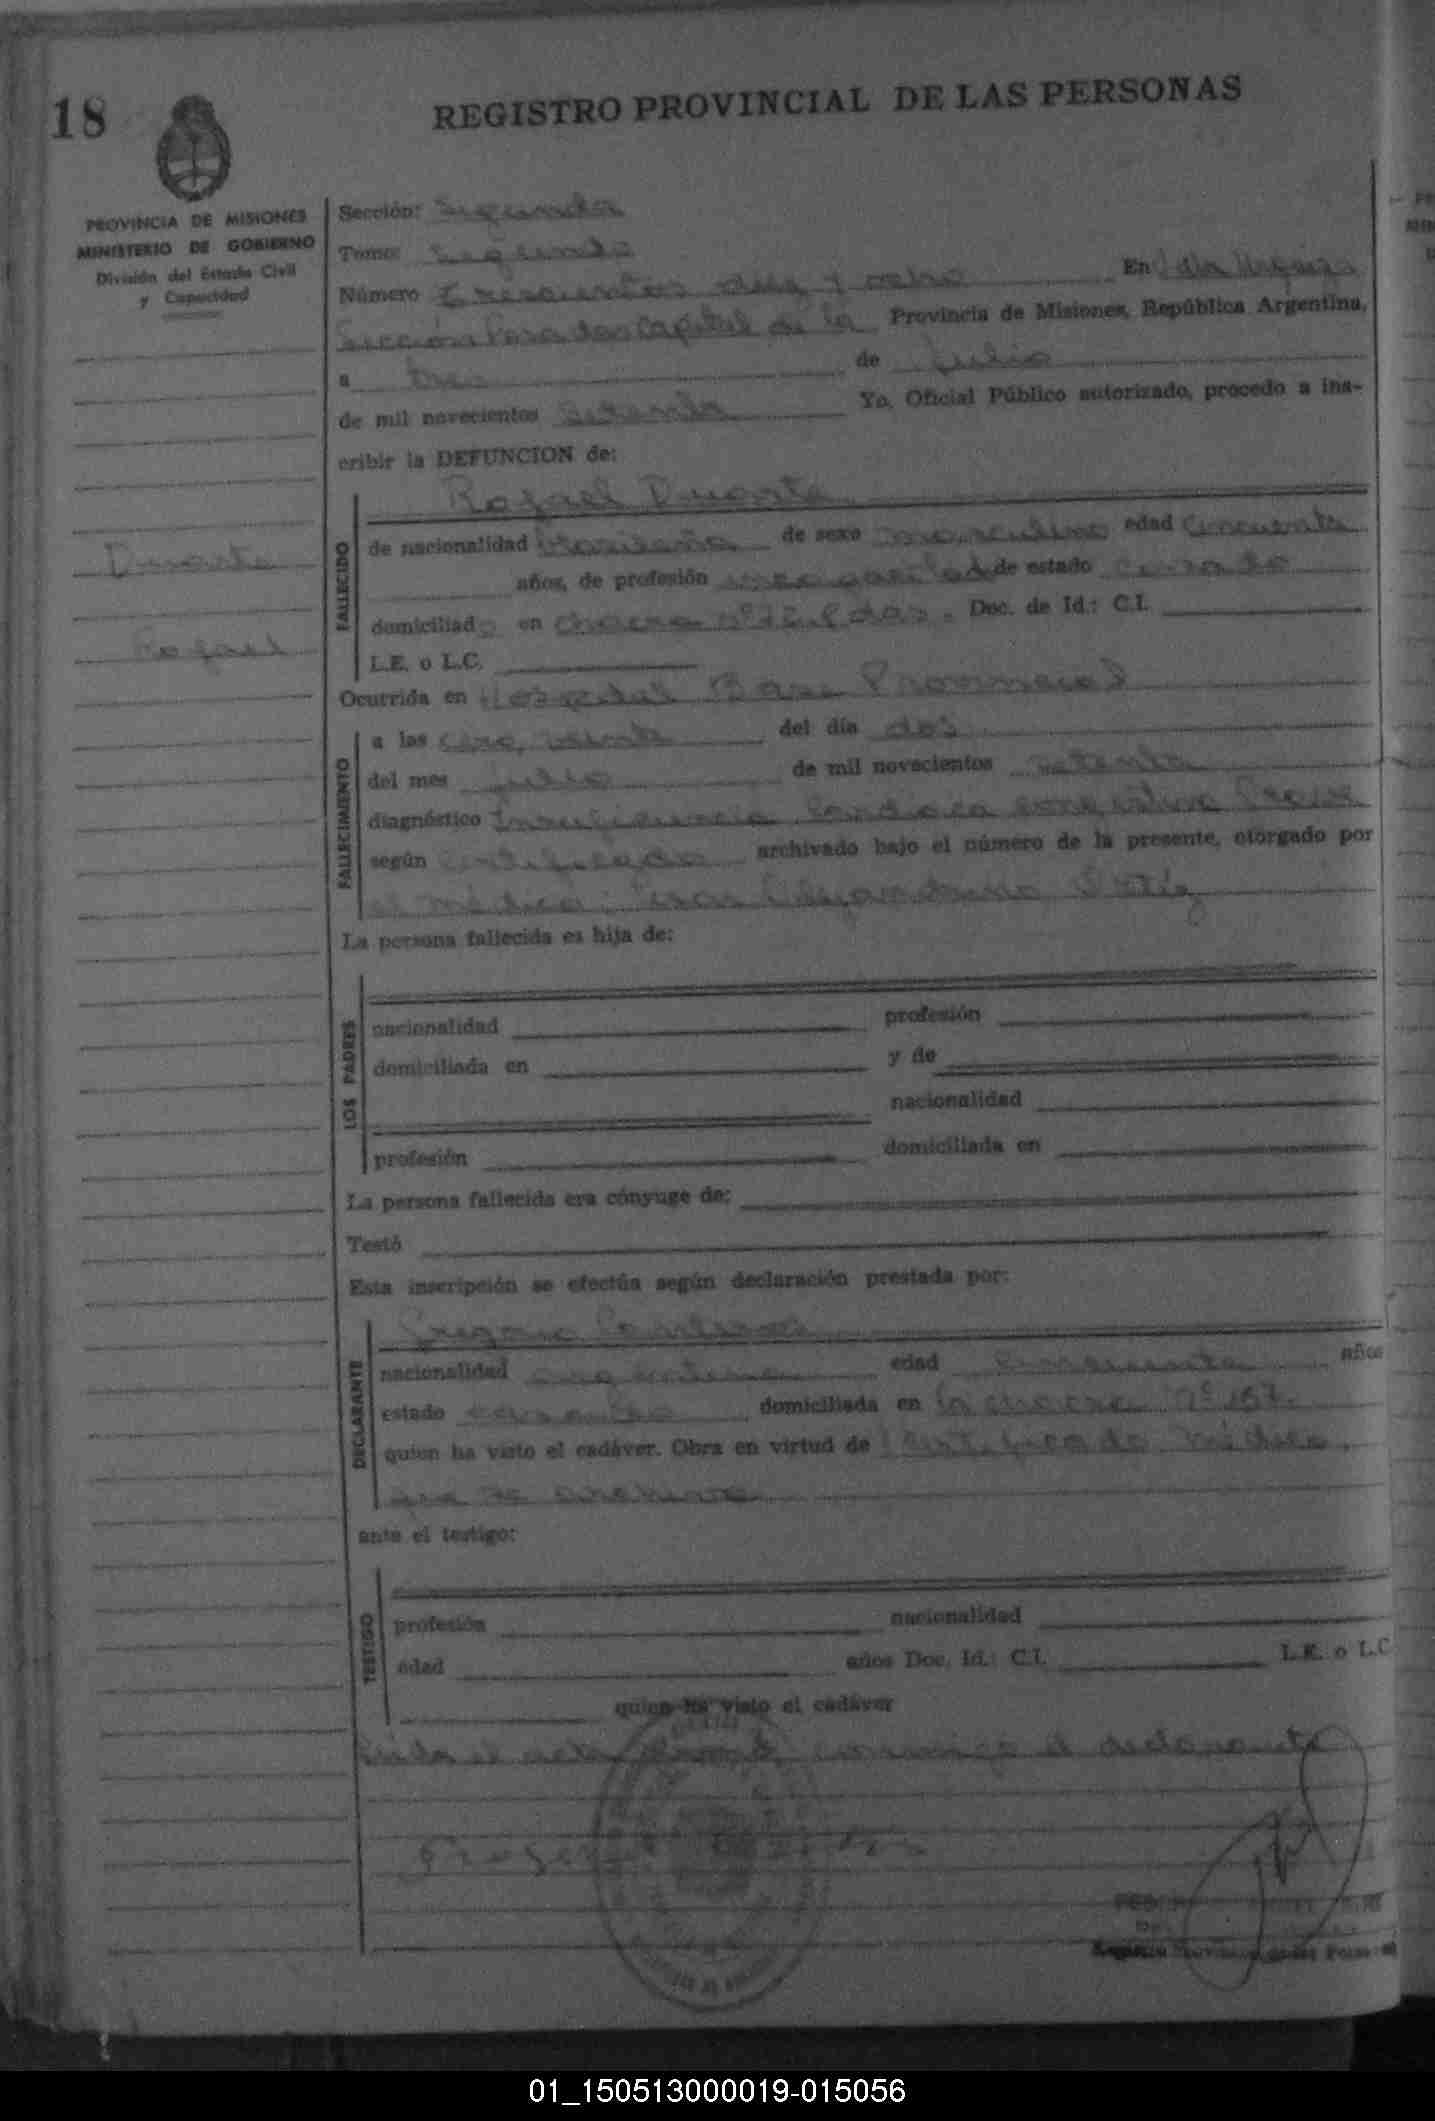 18
REGISTRO PROVINCIAL DE LAS PERSONAS
PROVINCIA DE MISIONES
MINISTERIO DE GOBIERNO
División del Estado Civil
y Capacidad
Duarte
Rafael
Sección: Segunda
Tomo: Segundo
Número Trescientos diez y ocho En
Sección Posadas Capital de la Provincia de Misiones, República Argentina,
a tres de Julio
de mil novecientos Setenta Yo, Oficial Público autorizado, procedo a ins-
cribir la DEFUNCION de:
FALLECIDO
Rafael Duarte
de nacionalidad brasileña de sexo masculino edad Cincuenta
años, de profesión de estado Casado
domiciliado en chacra Doc. de Id.: C.I.
L.E. o L.C.
Ocurrida en Hospital Base Provincial
FALLECIMIENTO
a las cero, veinte del día dos
del mes Julio de mil novecientos setenta
diagnóstico Insuficiencia Cardiaca congestiva
según certificado archivado bajo el número de la presente, otorgado por
el médico: Ortiz
La persona fallecida es hija de:
LOS PADRES
nacionalidad profesión
domiciliada en y de
nacionalidad
profesión domiciliada en
La persona fallecida era cónyuge de:
Testó
Esta inscripción se efectúa según declaración prestada por:
DECLARANTE
Gregorio
nacionalidad argentina edad Cincuenta años
estado casado domiciliada en la chacra Nº 157.
quien ha visto el cadáver. Obra en virtud de Certificado médico
que se archiva
ante el testigo:
TESTIGO
profesión nacionalidad
edad años Doc. Id.: C.I. L.E. o L.C
quien ha visto el cadáver
Leída el acta conmigo el declarante
01_150513000019-015056